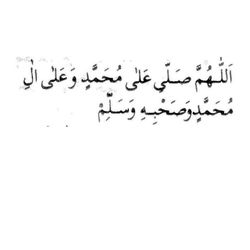 اَللّٰهُمَّ صَلِّي عَلٰى مُحَمَّدٍ وَعَلٰى اٰلِ
مُحَمَّدٍ وَصَحْبِهٖ وَسَلِّمْ